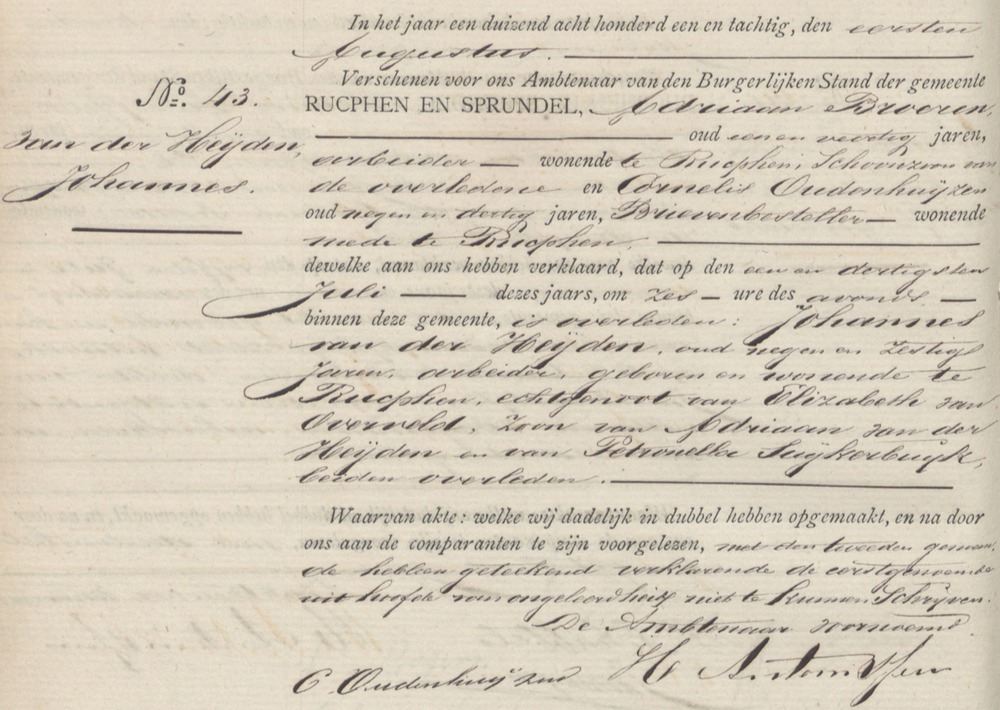 In het jaar een duizend acht honderd een en tachtig, den eersten
Augustus.
No. 43.
van der Heijden,
Johannes.
Verschenen voor ons Ambtenaar van den Burgerlijken Stand der gemeente
RUCPHEN EN SPRUNDEL, Adriaan Broeren,
oud een en veertig jaren,
arbeider wonende te Rucphen, Schoonzoon van
de overledene en Cornelis Oudenhuijzen
oud negen en dertig jaren, Brievenbesteller wonende
mede te Rucphen.
dewelke aan ons hebben verklaard, dat op den een en dertigsten
Juli dezes jaars, om zes ure des avonds
binnen deze gemeente, is overleden: Johannes
van der Heijden, oud negen en zestig
Jaren, arbeider, geboren en wonende te
Rucphen, echtgenoot van Elizabeth van
Overveld, Zoon van Adriaan van der
Heijden en van Petronella Suijkerbuijk,
beiden overleden.
Waarvan akte: welke wij dadelijk in dubbel hebben opgemaakt, en na door
ons aan de comparanten te zijn voorgelezen, met den tweeden genoem
de hebben geteekend verklarende de eerstgenoemde
uit hoofde van ongeleerdheid niet te kunnen Schrijven.
De Ambtenaar voornoemd
C Oudenhuijzen H